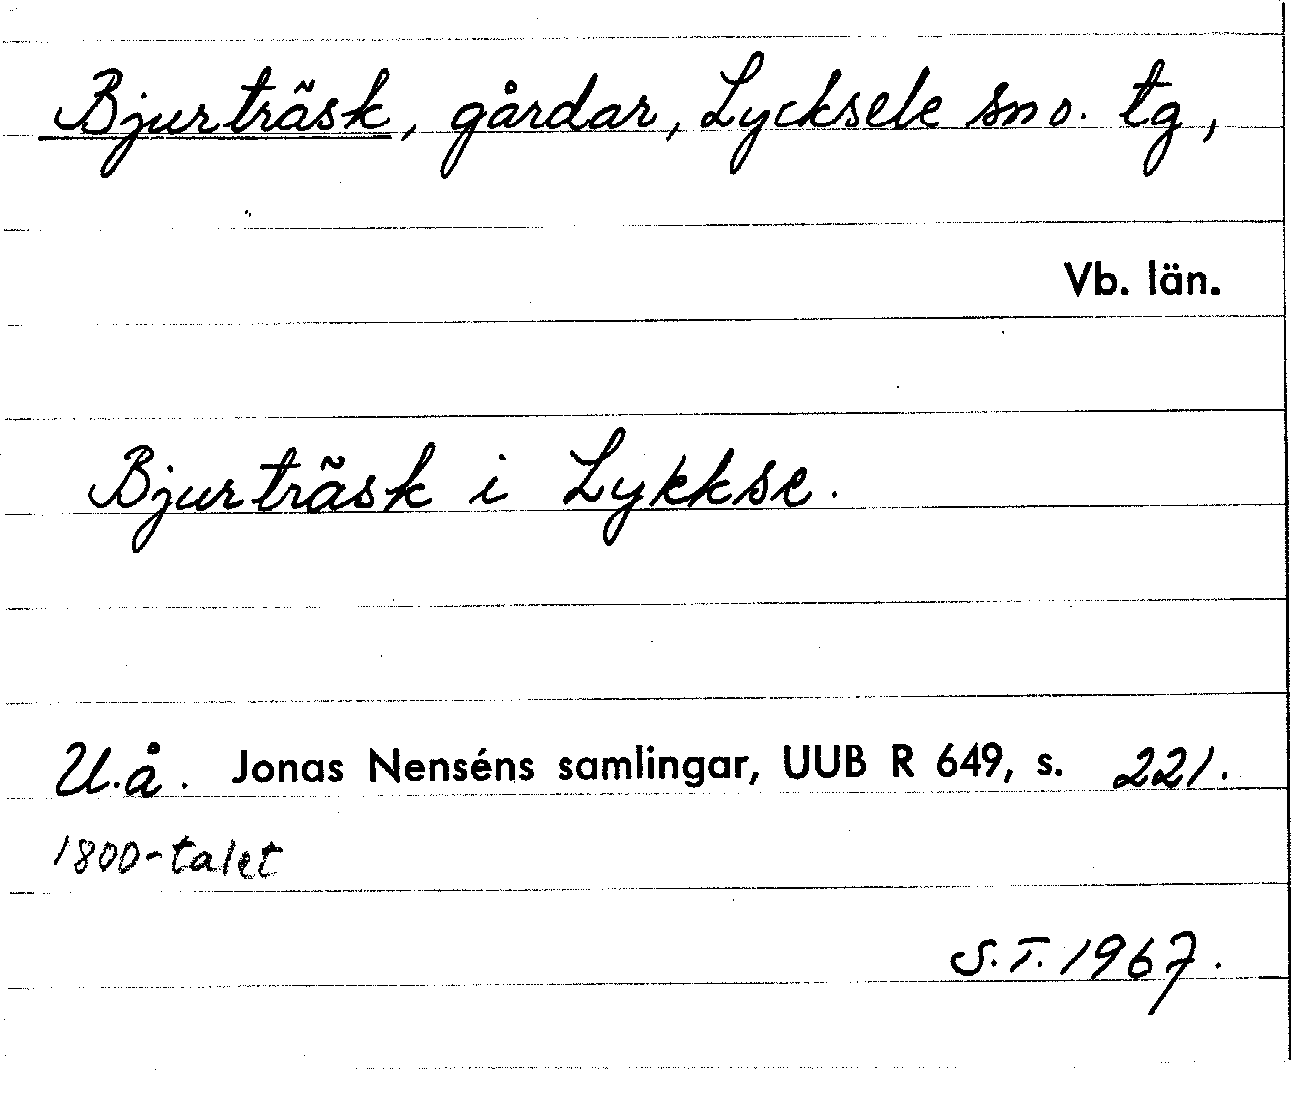 Bjurträsk, gårdar, Lycksele sn o. tg,
Vb. län.
Bjurträsk i Lykkse.
U.å. Jonas Nenséns samlingar, UUB R 649, s. 221.
1800-talet
S.T. 1967.